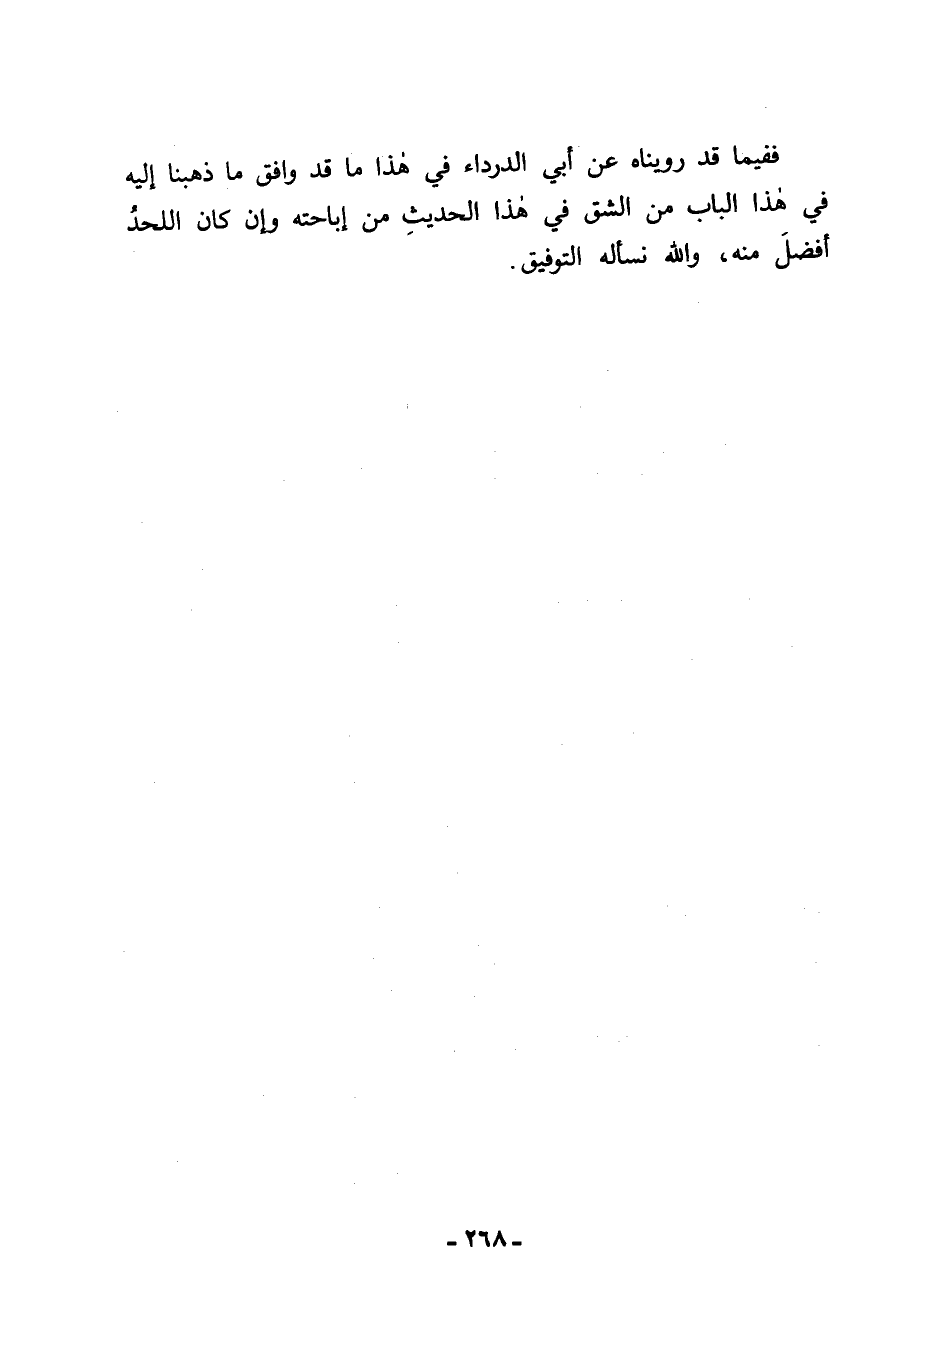 ففيما قد رويناه عن أبي الدرداء في هٰذا ما قد وافق ما ذهبنا إليه
في هٰذا الباب من الشق في هٰذا الحديثِ من إباحته وإن كان اللحدُ
أفضلَ منه، والله نسأله التوفيق.
ـ ٢٦٨ ـ